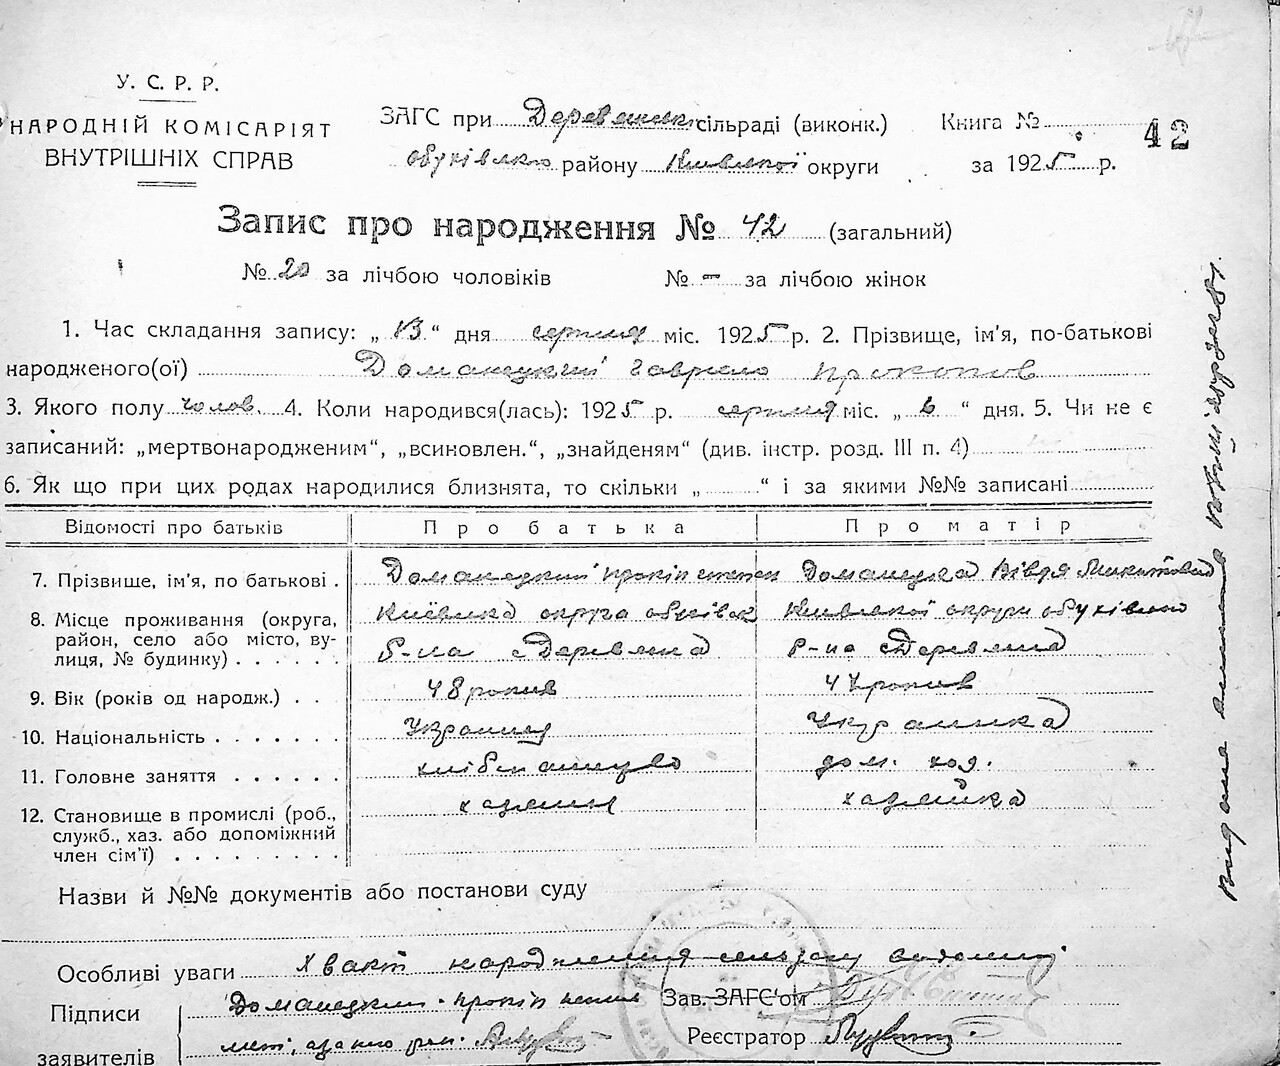 У. С. Р. Р.
НАРОДНІЙ КОМІСАРІЯТ
ВНУТРІШНІХ СПРАВ
ЗАГС при Деревянск. сільраді (виконк.) Книга №
42
району Київської округи за 1925 р.
Запис про народження № 42 (загальний)
№ 20 за лічбою чоловіків № – за лічбою жінок
1. Час складання запису: „13“ дня серпня міс. 1925 р. 2. Прізвище, ім'я, по-батькові
народженого(ої) Доманецкий Гаврило Прокопов
3. Якого полу чолов. 4. Коли народився(лась): 1925 р. серпня міс. „6“ дня. 5. Чи не є
записаний: „мертвонародженим“, „всиновлен.“, „знайденям“ (див. інстр. розд. III п. 4)
6. Як що при цих родах народилися близнята, то скільки „ “ і за якими №№ записані
Відомості про батьків Про батька Про матір
7. Прізвище, ім'я, по батькові . Доманецкий Прокіп Доманецка
8. Місце проживання (округа, Киевска округа обухівск Киевскої округи
район, село або місто, ву-
лиця, № будинку) . . . . . . Р-на с Деревяна Р-на с Деревяна
9. Вік (років од народж.) . . 48 рокив 47 рокив
10. Національність . . . . . . . Украинец Украинка
11. Головне заняття . . . . . . дом. хоз.
12. Становище в промислі (роб., хазяин хазяйка
служб., хаз. або допоміжний
член сім'ї) . . . . . . . . .
Назви й №№ документів або постанови суду
Особливі уваги народження
Підписи Доманецкий Прокіп Зав. ЗАГС'ом
заявителів Реєстратор